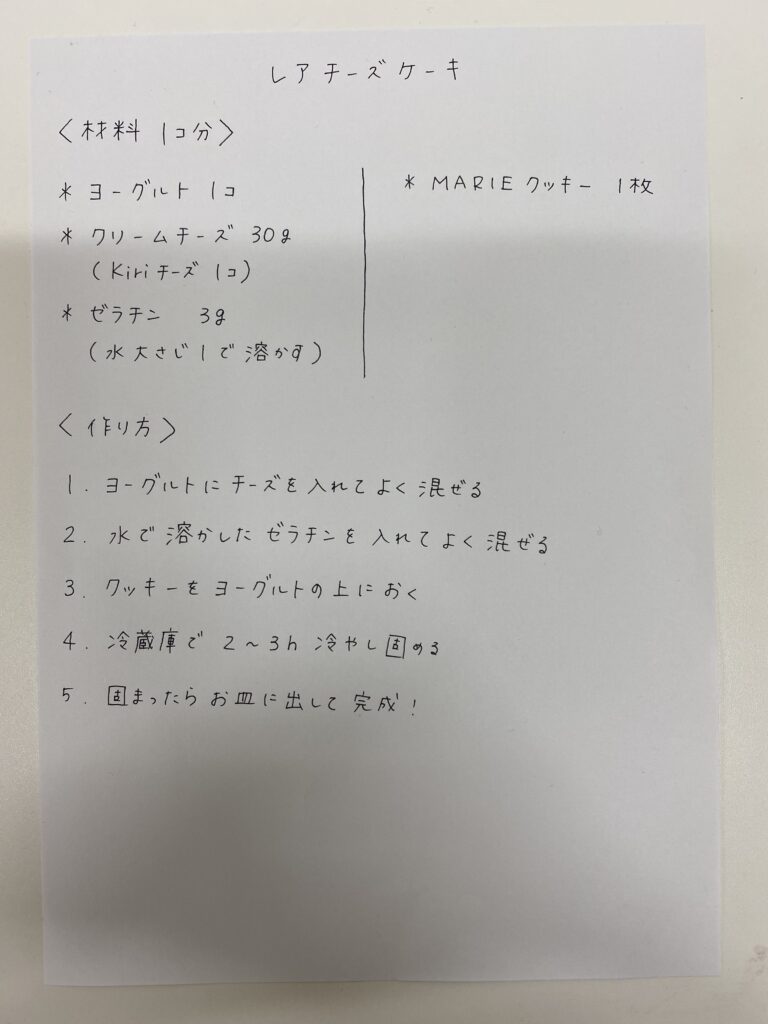 レアチーズケーキ
〈材料 1コ分〉
* ヨーグルト 1コ
* クリームチーズ 30g
(Kiriチーズ 1コ)
* ゼラチン 3g
(水 大さじ1で溶かす)
* MARIEクッキー 1枚
〈作り方〉
1. ヨーグルトにチーズを入れてよく混ぜる
2. 水で溶かしたゼラチンを入れてよく混ぜる
3. クッキーをヨーグルトの上におく
4. 冷蔵庫で 2~3h 冷やし固める
5. 固まったらお皿に出して完成!